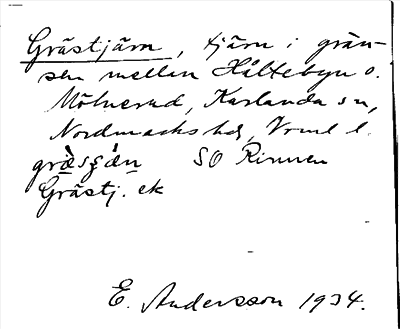 Grästjärn, tjärn i grän-
sen mellan Hältebyn o.
Mölnerud, Karlanda sn,
Nordmarks hd, Vrml l.
SO Rinnen
Grästj. ek
E. Andersson 1934.